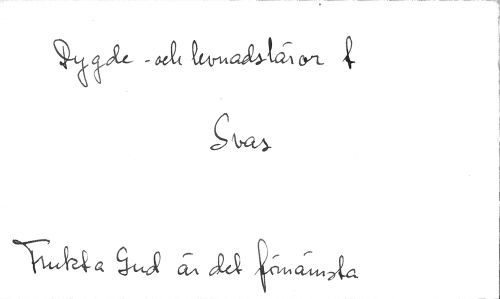 Dygde- och levnadsläror f
Svas
Frukta Gud är det förnämsta